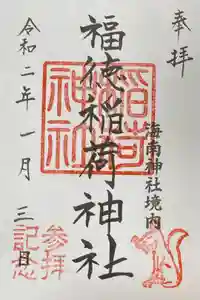 奉拝
海南神社境内
福徳稲荷神社
稲荷神社
令和二年一月三日
参拝記念